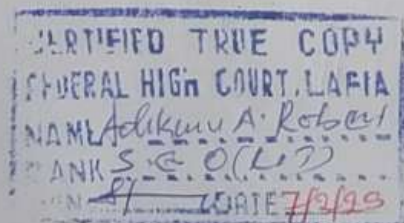 CERTIFIED TRUE COPY
FEDERAL HIGH COURT, LAFIA
NAME A. Robert
RANK S.E.O (LIT)
DATE 7/2/25